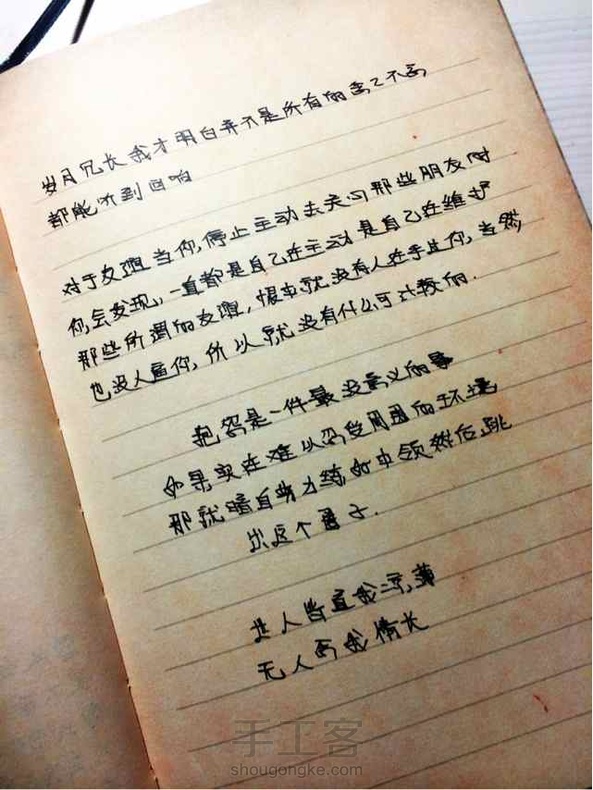 岁月冗长我才明白并不是所有的念念不忘
都能听到回响
对于友谊当你,停止主动去关心那些朋友时
你会发现,一直都是自己在主动是自己在维护
那些所谓的友谊,根本就没有人在乎过你,当然
也没人逼你,所以就没有什么可计较的.
抱怨是一件最没意义的事
如果实在难以忍受周围的环境
那就暗自努力练好本领然后跳
出这个圈子.
世人皆道我凉薄
无人与我情长
手工客
shougongke.com